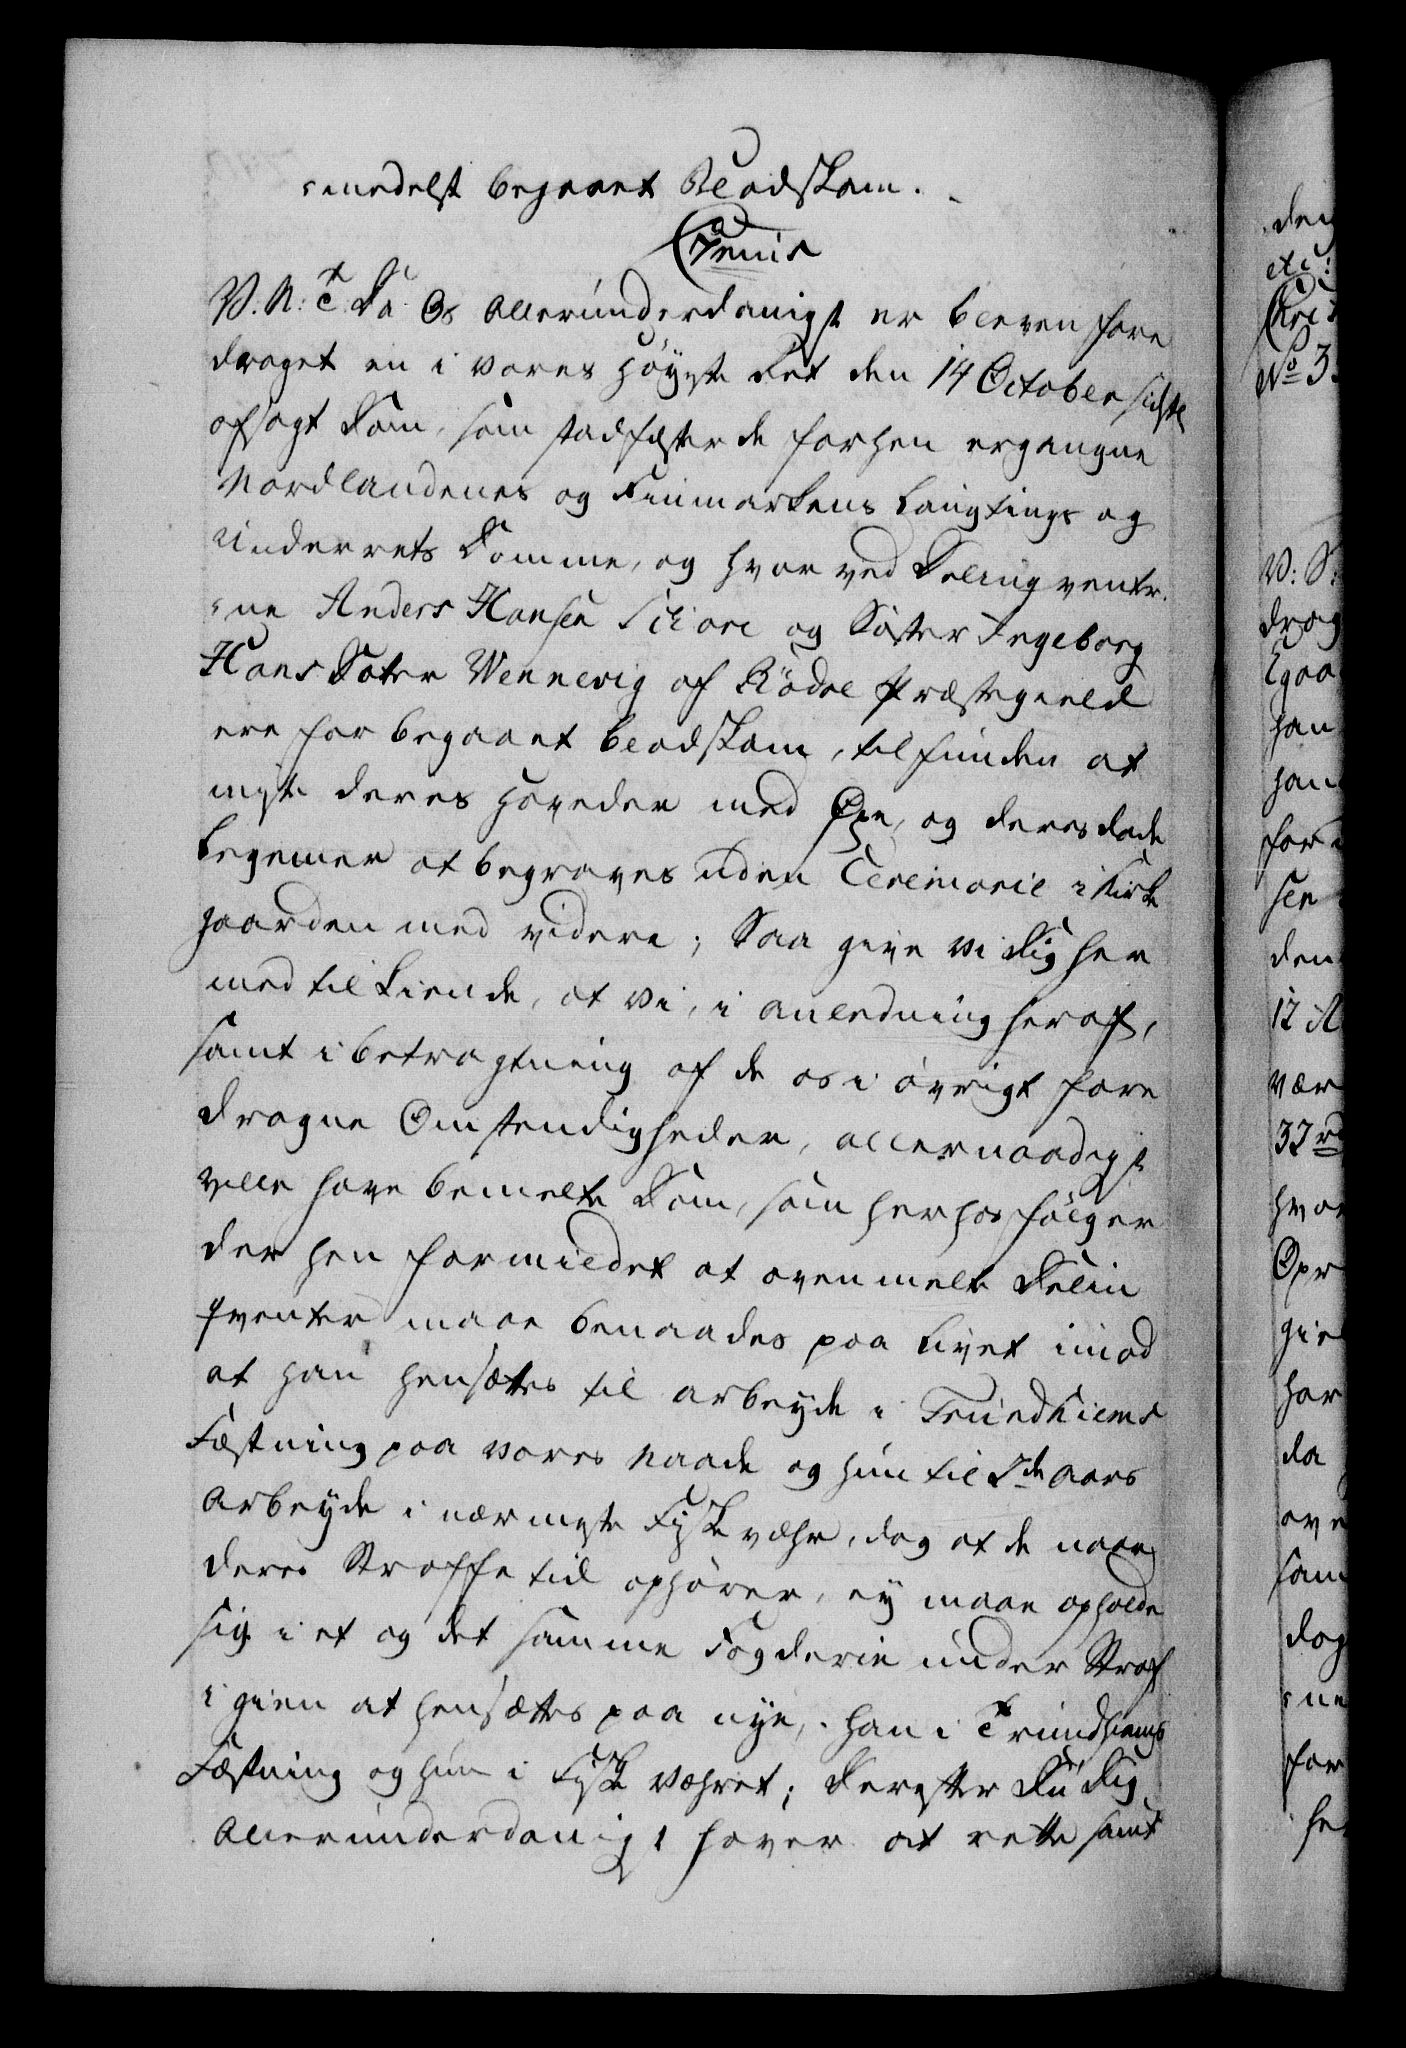 medelst begaaet Blodskam.
V. N. T. Da Os Allerunderdanigst er bleven fore
draget en i vores Høyste Ret den 14 October sidste
afsagt Dom, som stadfæster de forhen ergangne
Nordlandenes og Finmarkens Laugtings og
Underrets Domme, og hvorved Delinqventer
ne Anders Hansen og Søster Ingeborg
Hans Dater Wennevig af Rödöe Præstegield
ere for begaaet blodskam, tilfunden at
miste deres hoveder med Øxe, og deres døde
Legemer at begraves uden Ceremonie i Kirke
gaarden med videre; Saa give vi Dig her
med til kiende, at vi, i anledning heraf,
samt i betragtning af de os i øvrigt fore
dragne Omstendigheder, allernaadigst
ville have bemelte Dom, som herhos følger
derhen formildet at ovenmelte Delin
qventer maae benaades paa Livet imod
at han hensættes til arbeyde i Trundhiems
Fæstning paa vores Naade og hun til 2de Aars
Arbeyde i nærmeste Fiskevæhr, dog at de naar
deres Straffe tid ophører, ey maae opholde
sig i et og det samme Fogderie under Straf
igien at hensættes paa nye, han i Trundhiems
Fæstning og hun i Fiske Væhret; Derefter Du Dig
Allerunderdanigst haver at rette samt
den
etc:
No 3
V: S:
drag
han
for
sen
den
12 A
vær
hvor
Opr
gie
har
da
ove
sam
dog
ne
for
he